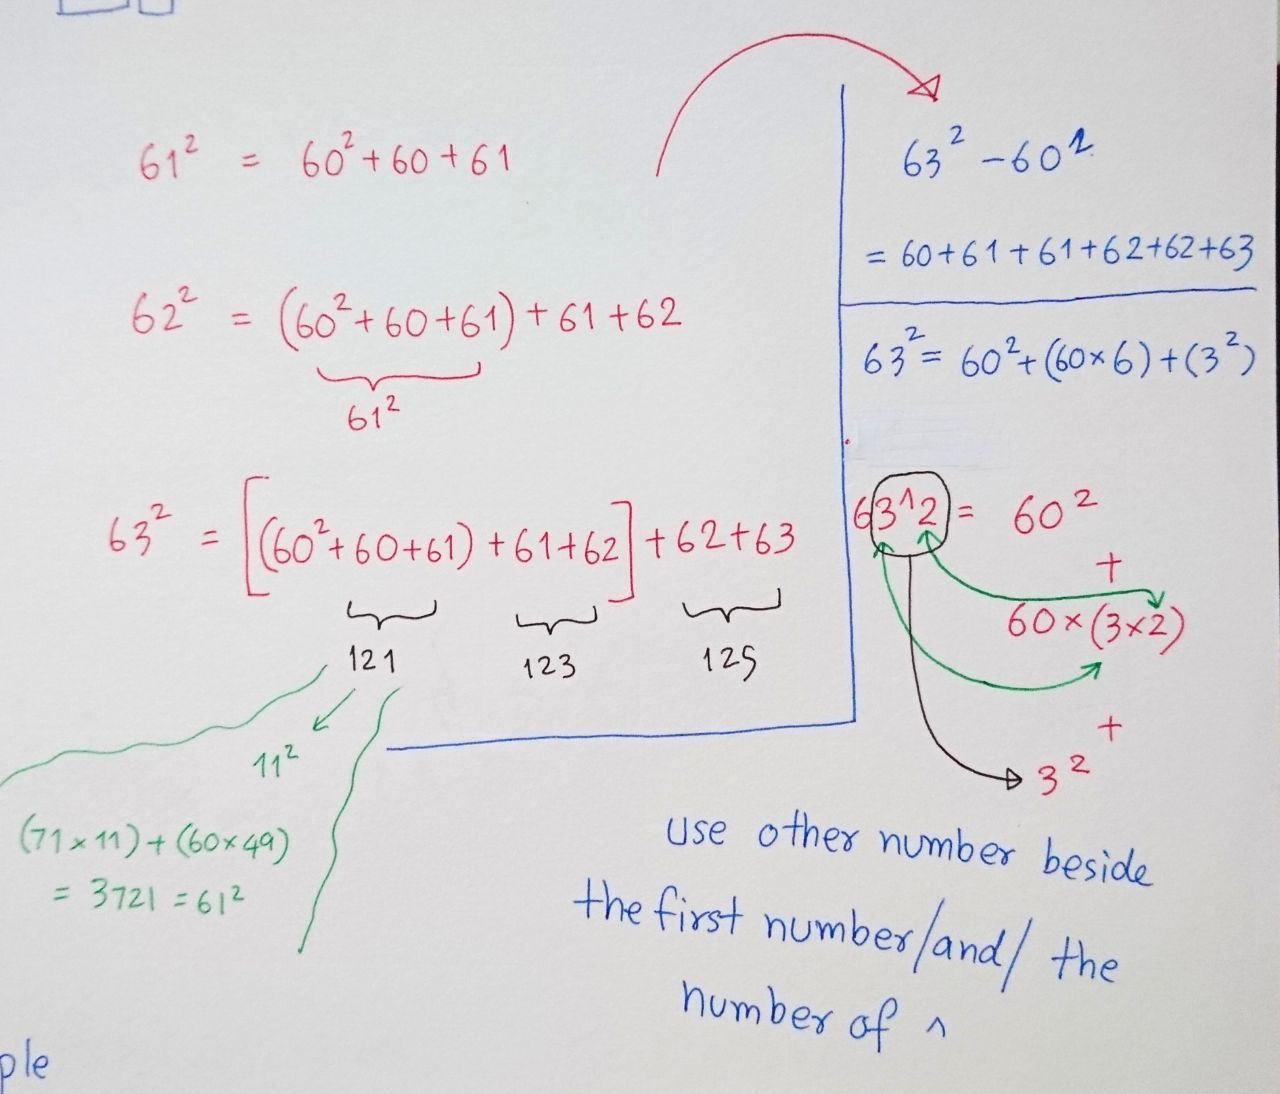 61² = 60² + 60 + 61
62² = (60² + 60 + 61) + 61 + 62
61²
63² = [(60² + 60 + 61) + 61 + 62] + 62 + 63
121 123 125
11²
(71 × 11) + (60 × 49)
= 3721 = 61²
63² - 60²
= 60 + 61 + 61 + 62 + 62 + 63
63² = 60² + (60 × 6) + (3²)
63^2 = 60²
+
60 × (3 × 2)
+
3²
use other number beside
the first number/and/ the
number of ^
ple